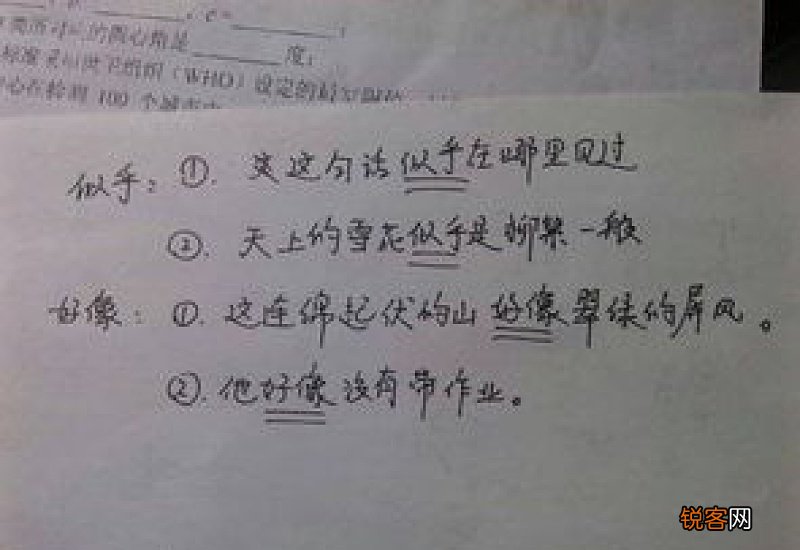 的圆心角是______度；
(WHO) 设定的
100 个城市
似乎：①. 这句话似乎在哪里见过
②. 天上的雪花似乎是柳絮一般
好像：①. 这连绵起伏的山好像翠绿的屏风。
②. 他好像没有带作业。
锐客网